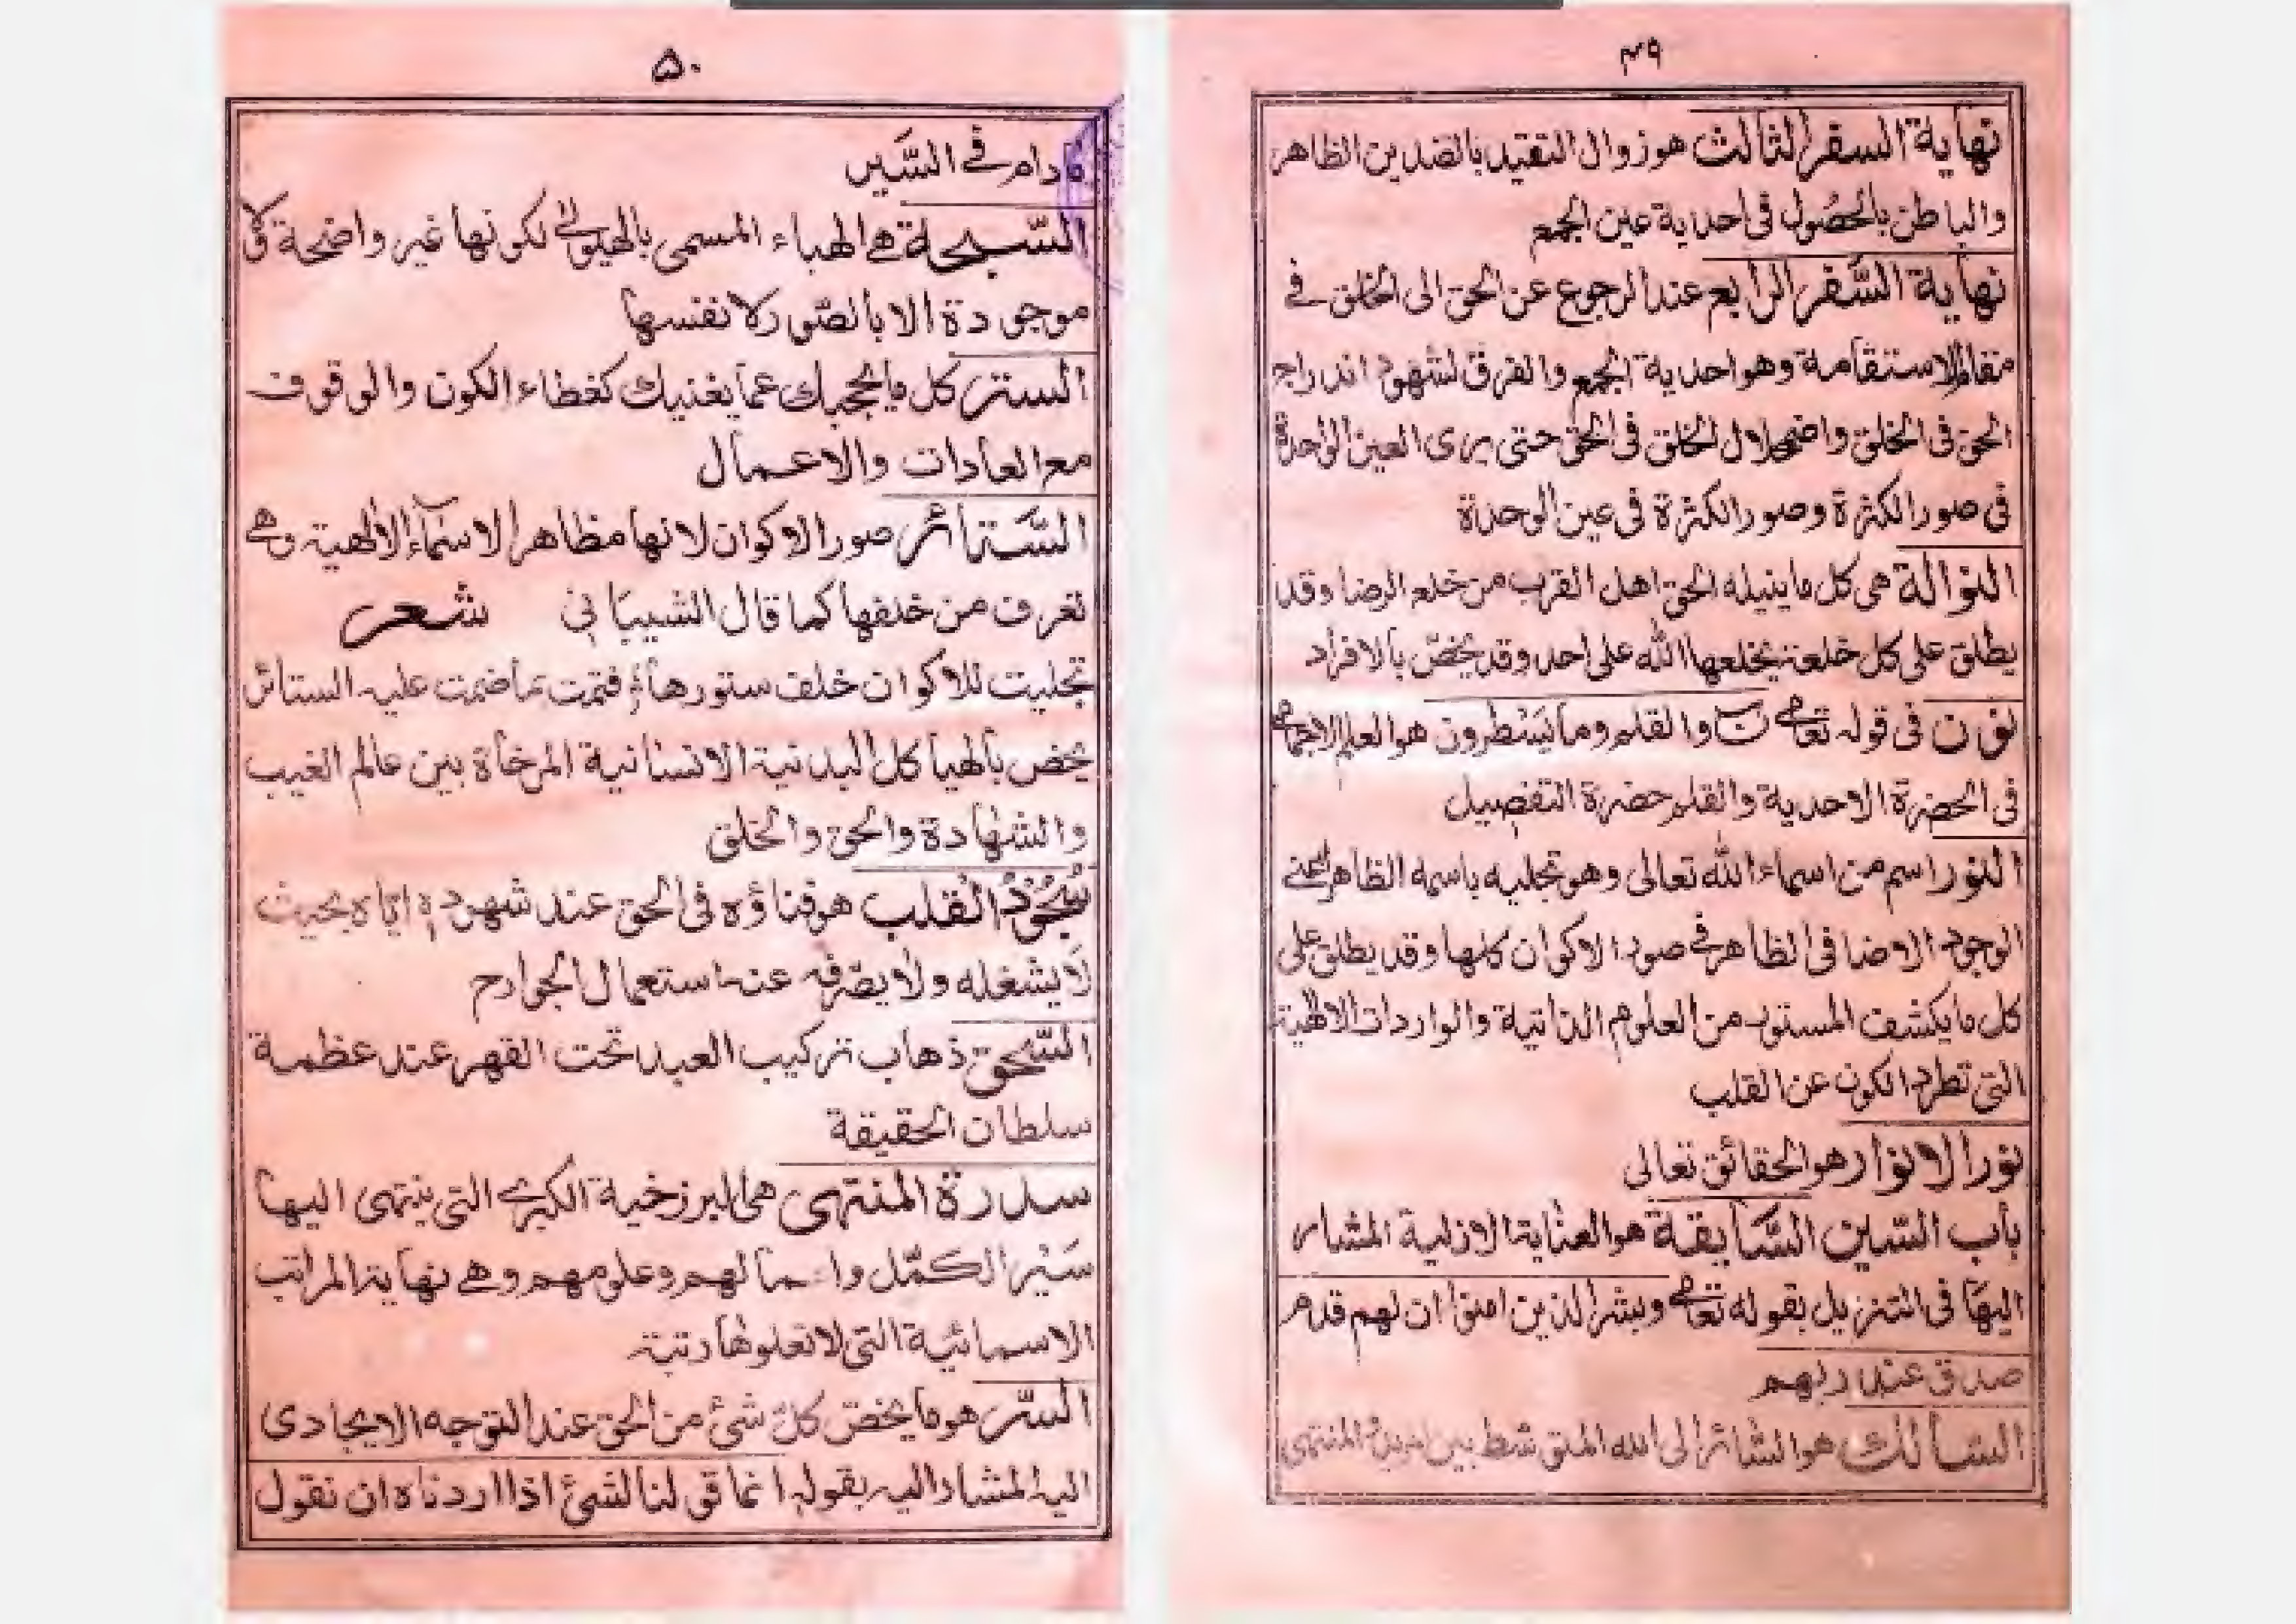 ٤٩
نهاية السفر الثالث هو زوال التقيد بالضدين الظاهر
والباطن بالحصول فى احدية عين الجمع
نهاية السفر الرابع عند الرجوع عن الحق الى الخلق فى
مقام الاستقامة وهو احدية الجمع والفرق لشهود اندراج
الحق فى الخلق واضمحلال الخلق فى الحق حتى يرى العين الواحدة
فى صور الكثرة وصور الكثرة فى عين الوحدة
النوالة هى كل ما ينيله الحق اهل القرب من خلع الرضا وقد
يطلق على كل خلعة يخلعها الله على احد وقد يخص بالافراد
نون فى قوله تعالى ن والقلم وما يسطرون هو العلم الاجمالى
فى الحضرة الاحدية والقلم حضرة التفصيل
النور اسم من اسماء الله تعالى وهو تجليه باسمه الظاهر اعنى
الوجود الاضافى الظاهر فى صور الاكوان كلها وقد يطلق على
كل ما يكشف المستور من العلوم الذاتية والواردات الالهية
التى تطرد الكون عن القلب
نور الانوار هو الحقائق تعالى
باب السين السابقة هو العناية الازلية المشار
اليها فى التنزيل بقوله تعالى وبشر الذين امنوا ان لهم قدم
صدق عند ربهم
السالك هو السائر الى الله المتوسط بين المريد المنتهى
۵۰
مادام فى السير
السبحة هى الهباء المسمى بالهيولى لكونها غير واضحة ولا
موجودة الا بالصور لا نفسها
الستر كل ما يحجبك عما يغنيك كغطاء الكون والوقوف
مع العادات والاعمال
الستائر صور الاكوان لانها مظاهر الاسماء الالهية وهى
تعرف من خلفها كما قال الشيبانى شعر
تجليت للاكوان خلف ستورها فتمت بما ضمت عليه الستائر
يخص بالهياكل البدنية الانسانية المرخاة بين عالم الغيب
والشهادة والحق والخلق
سُجُوْدُ القلب هو فناؤه فى الحق عند شهوده اياه بحيث
لا يشغله ولا يصرفه عنه استعمال الجوارح
السَّحق ذهاب تركيب العبد تحت القهر عند عظمة
سلطان الحقيقة
سدرة المنتهى هى البرزخية الكبرى التى ينتهى اليها
سَيْر الكمّل واعمالهم وعلومهم وهى نهاية المراتب
الاسمائية التى لا تعلوها رتبة
السّر هو ما يخص كل شئ من الحق عند التوجه الايجادى
اليه المشار اليه بقوله انما قولنا لشئ اذا اردناه ان نقول